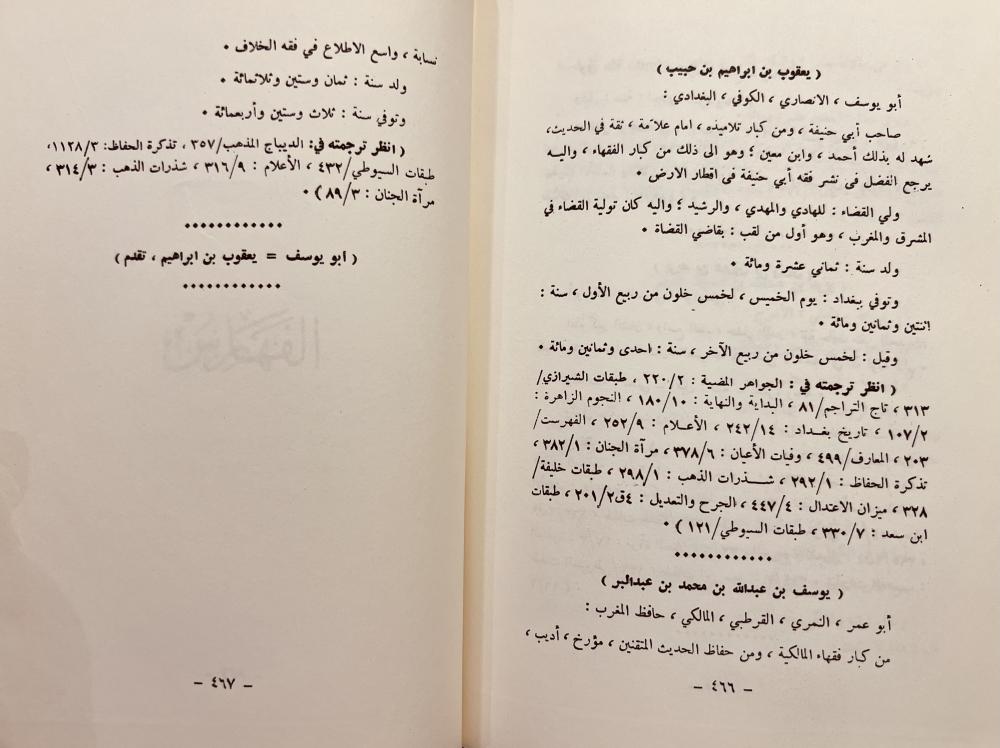 ( يعقوب بن ابراهيم بن حبيب )
أبو يوسف ، الانصاري ، الكوفي ، البغدادي :
صاحب أبي حنيفة ، ومن كبار تلاميذه ، امام علامّة ، ثقة في الحديث،
شهد له بذلك أحمد ، وابن معين ؛ وهو الى ذلك من كبار الفقهاء ، واليـه
يرجع الفضل فى نشر فقه أبي حنيفة في اقطار الارض •
ولي القضاء : للهادي والمهدي ، والرشيد ؛ واليه كان تولية القضاء في
المشرق والمغرب ، وهو أول من لقب : بقاضي القضاة •
ولد سنة : ثماني عشرة ومائة •
وتوفي ببغداد : يوم الخميس ، لخمس خلون من ربيع الأول ، سنة :
اثنتين وثمانين ومائة •
وقيل : لخمس خلون من ربيع الآخر ، سنة : احدى وثمانين ومائة •
( انظر ترجمته في : الجواهر المضية : ٢/‏٢٢٠ ، طبقات الشيرازي/
٣١٣ ، تاج التراجم/٨١ ، البداية والنهاية : ١٠/‏١٨٠ ، النجوم الزاهرة :
٢/‏١٠٧ ، تاريخ بغـداد : ١٤/‏٢٤٢ ، الأعـلام : ٩/‏٢٥٢ ، الفهرست/
٢٠٣ ، المعارف/٤٩٩ ، وفيات الأعيان : ٦/‏٣٧٨ ، مرآة الجنان : ١/‏٣٨٢ ،
تذكرة الحفاظ : ١/‏٢٩٢ ، شـــذرات الذهب : ١/‏٢٩٨ ، طبقات خليفة/
٣٢٨ ، ميزان الاعتدال : ٤/‏٤٤٧ ، الجرح والتعديل : ٤ق٢/‏٢٠١ ، طبقات
ابن سعد : ٧/‏٣٣٠ ، طبقات السيوطي/١٢١ ) •
••••••••••••
( يوسف بن عبدالله بن محمد بن عبدالبر )
أبو عمر ، النمري ، القرطبي ، المالكي ، حافظ المغرب :
من كبار فقهاء المالكية ، ومن حفاظ الحديث المتقنين ، مؤرخ ، أديب ،
– ٤٦٦ –
نسابة ، واسع الاطلاع في فقه الخلاف •
ولد سنة : ثمان وستين وثلاثمائة •
وتوفي سنة : ثلاث وستين وأربعمائة •
( انظر ترجمته في: الديباج المذهب/٣٥٧ ، تذكرة الحفاظ: ٣/‏١١٢٨،
طبقات السيوطي/٤٣٢ ، الأعلام : ٩/‏٣١٦ ، شذرات الذهب : ٣/‏٣١٤ ،
مرآة الجنان : ٣/‏٨٩ ) •
••••••••••••
( أبو يوسف = يعقوب بن ابراهيم ، تقدم )
••••••••••••
الفهارس
– ٤٦٧ –